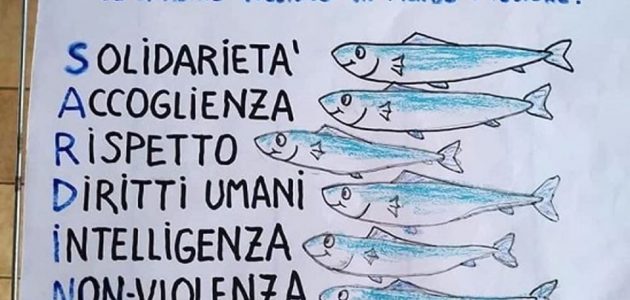 SOLIDARIETA'
ACCOGLIENZA
RISPETTO
DIRITTI UMANI
INTELLIGENZA
NON-VIOLENZA